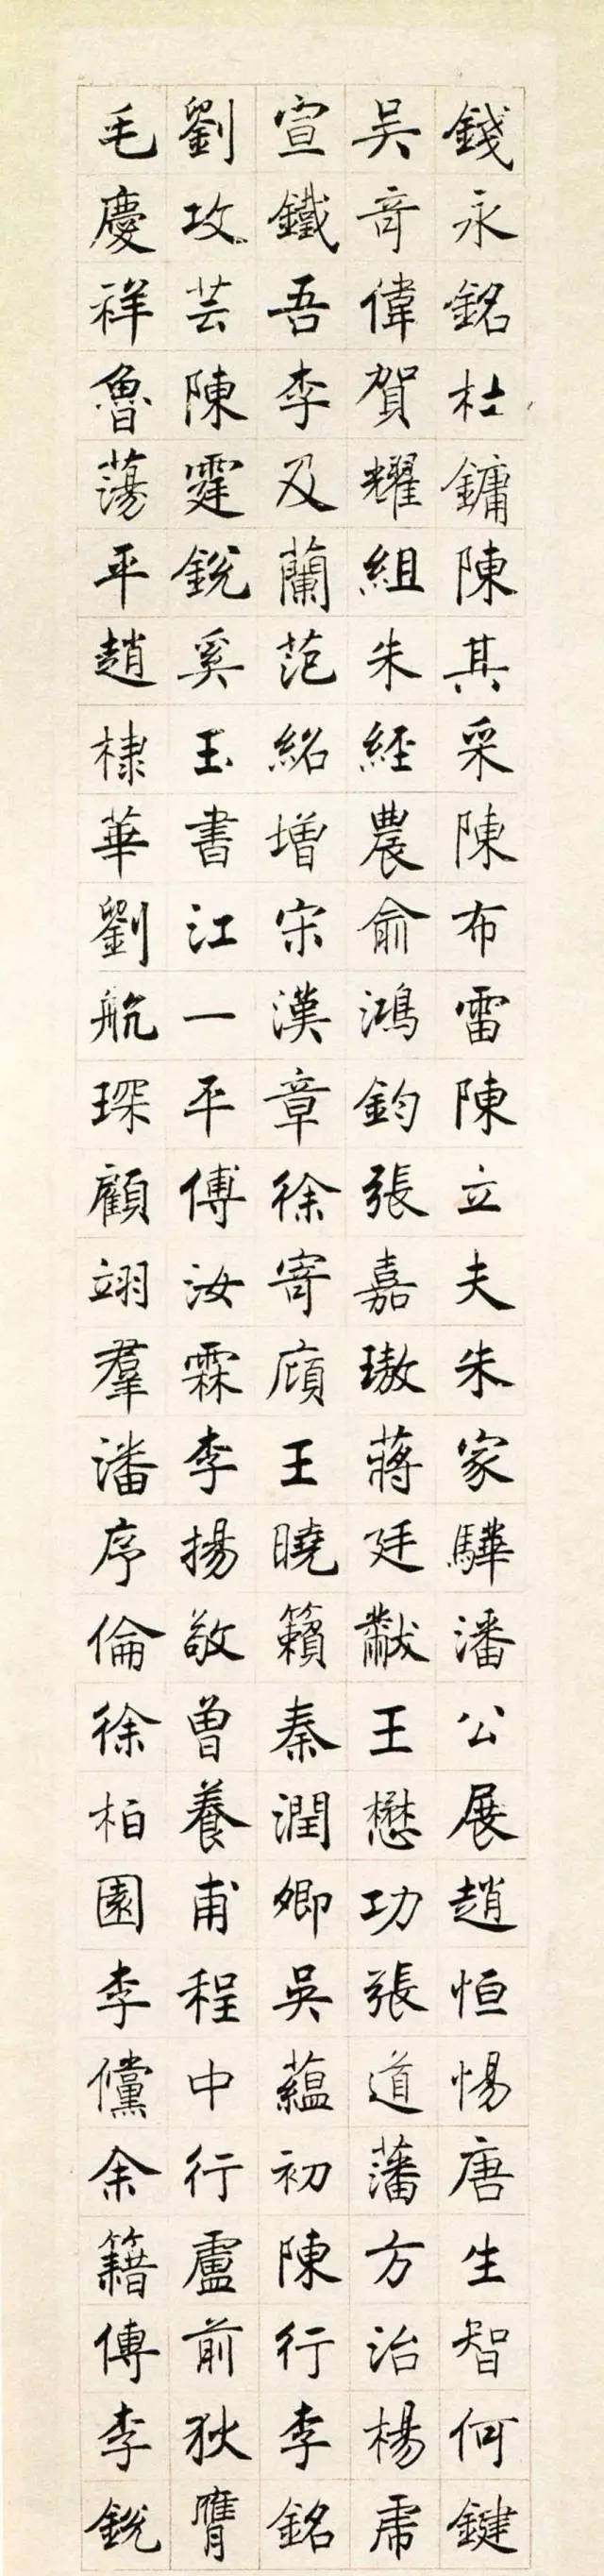 錢永銘杜鏞陳其采陳布雷陳立夫朱家驊潘公展趙恒惕唐生智何鍵
吴奇偉賀耀組朱經農俞鴻鈞張嘉璈蔣廷黻王懋功張道藩方治楊虎
宣鐵吾李及蘭范紹增宋漢章徐寄廎王曉籟秦潤卿吳藴初陳行李銘
劉攻芸陳霆銳奚玉書江一平傅汝霖李揚敬曾養甫程中行盧前狄膺
毛慶祥魯蕩平趙棣華劉航琛顧翊羣潘序倫徐柏園李儻余籍傳李銳